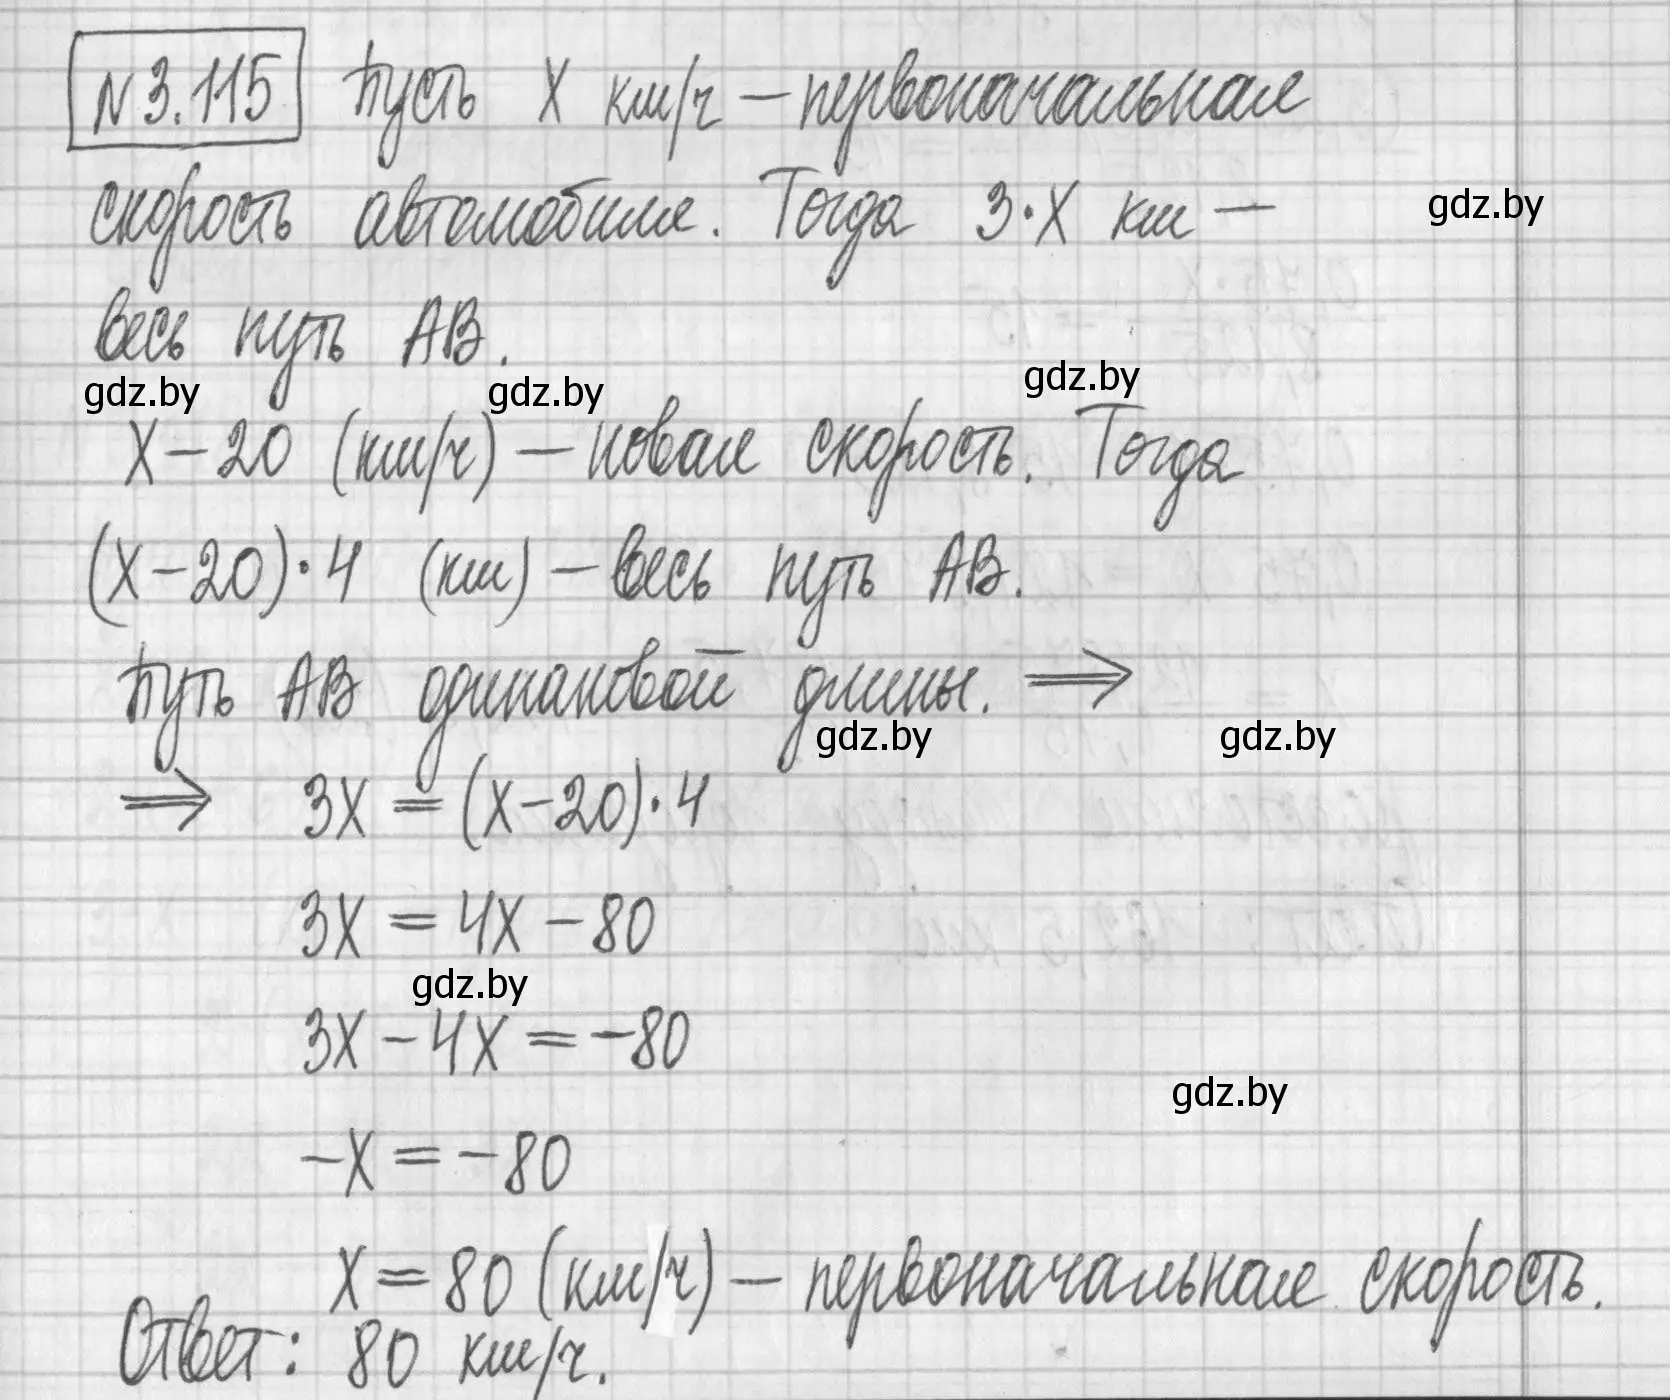 № 3.115 Пусть X км/ч — первоначальная
скорость автомобиля. Тогда 3·X км —
gdz.by
весь путь АВ.
gdz.by gdz.by gdz.by
X – 20 (км/ч) — новая скорость. Тогда
(X – 20)·4 (км) — весь путь АВ.
Путь АВ одинаковой длины. ⇒
gdz.by gdz.by
⇒ 3X = (X – 20)·4
3X = 4X – 80
gdz.by
3X – 4X = –80
gdz.by
–X = –80
X = 80 (км/ч) — первоначальная скорость.
Ответ: 80 км/ч.